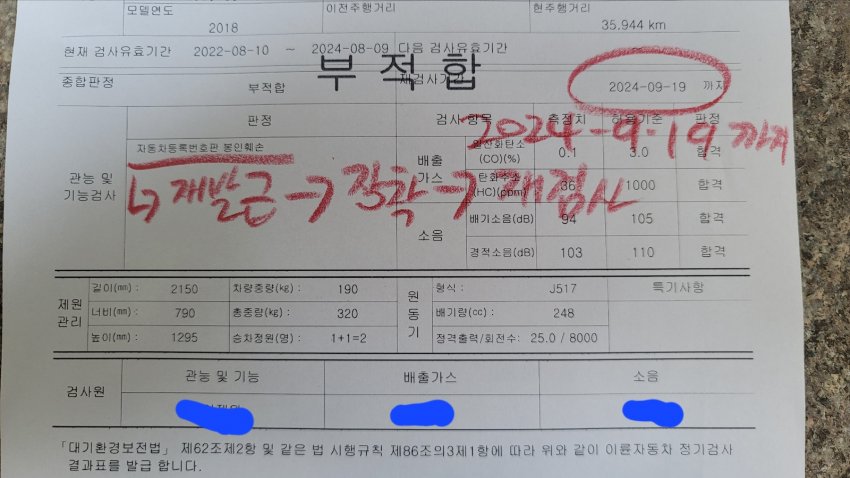 모델연도 2018 이전주행거리 현주행거리 35,944 km
현재 검사유효기간 2022-08-10 ~ 2024-08-09 다음 검사유효기간 ~
종합판정 부적합 부적합 재검사기간 2024-09-19 까지
2024-9-19 까지
판정 검사 항목 측정치 허용기준 판정
관능 및 기능검사
자동차등록번호판 봉인훼손
↳ 재발급 → 장착 → 재검사
배출가스 일산화탄소(CO)(%) 0.1 3.0 합격
탄화수소(HC)(ppm) 36 1000 합격
소음 배기소음(dB) 94 105 합격
경적소음(dB) 103 110 합격
제원관리 길이(mm) : 2150 차량중량(kg) : 190 원동기 형식 : J517 특기사항
너비(mm) : 790 총중량(kg) : 320 배기량(cc) : 248
높이(mm) : 1295 승차정원(명) : 1+1=2 정격출력/회전수: 25.0 / 8000
검사원 관능 및 기능 배출가스 소음
「대기환경보전법」 제62조제2항 및 같은 법 시행규칙 제86조의3제1항에 따라 위와 같이 이륜자동차 정기검사
결과표를 발급 합니다.